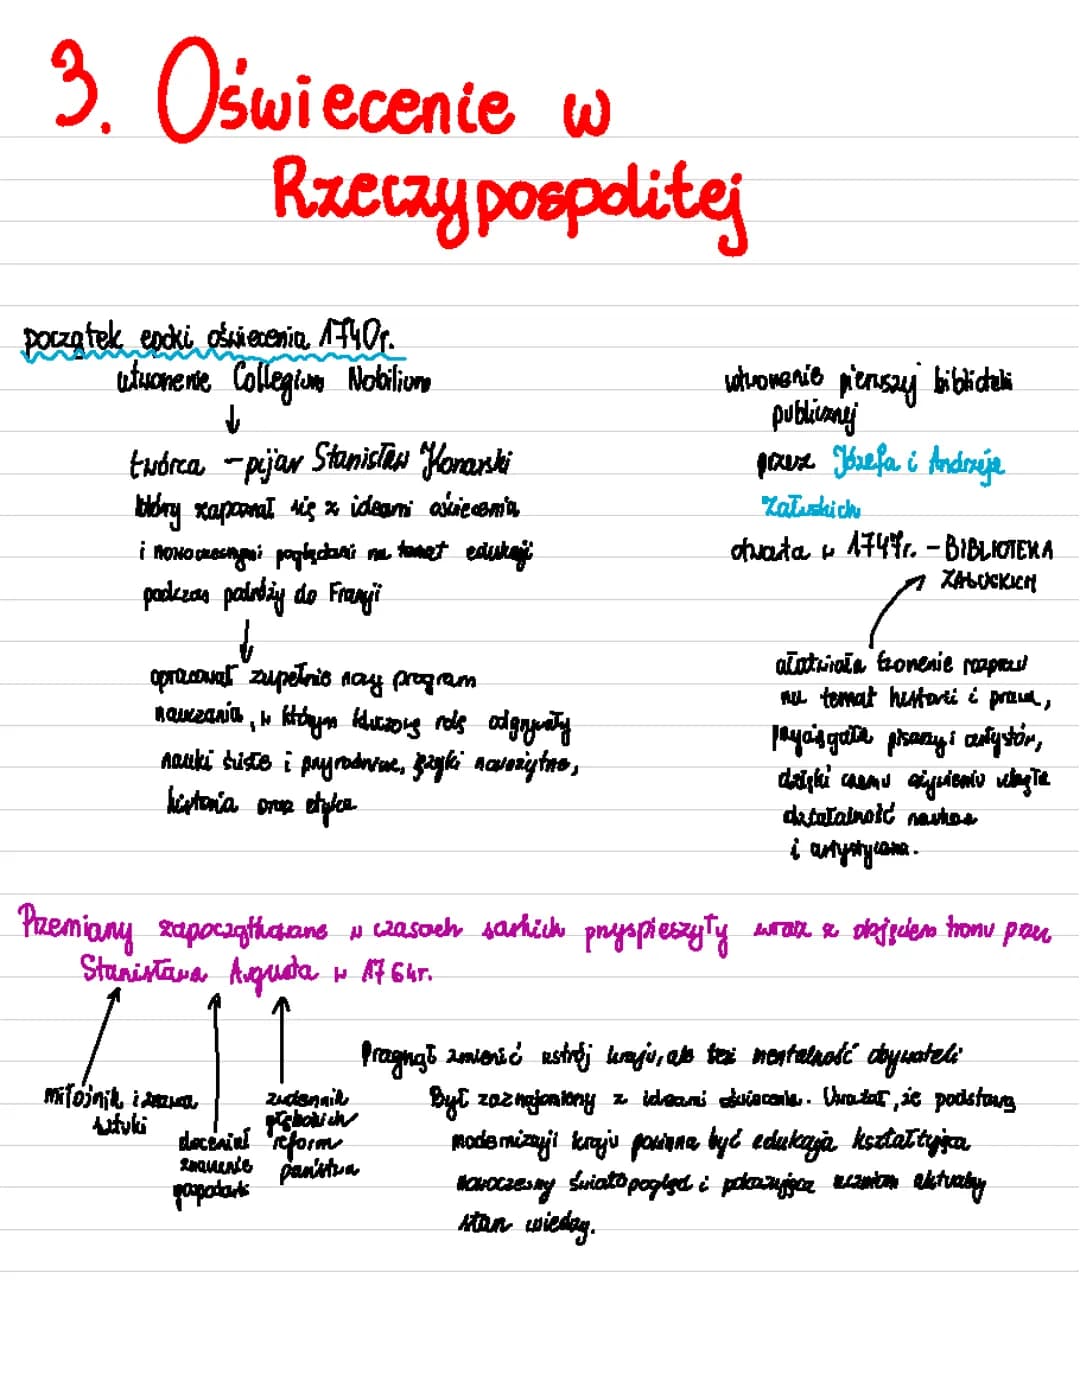 3. Oświecenie w
Rzeczypospolitej
początek epoki oświecenia 1740r.
utworzenie Collegium Nobilium
↓
twórca - pijar Stanisław Konarski
który zapoznał się z ideami oświecenia
i nowoczesnymi poglądami na temat edukacji
podczas podróży do Francji
↓
opracował zupełnie nowy program
nauczania, w którym kluczową rolę odgrywały
nauki ścisłe i przyrodnicze, języki nowożytne,
historia oraz etyka
utworzenie pierwszej biblioteki
publicznej
przez Józefa i Andrzeja
Załuskich
otwarta w 1747r. - BIBLIOTEKA
ZAŁUSKICH
ułatwiała tworzenie rozpraw
na temat historii i prawa,
przyciągała pisarzy i artystów,
dzięki czemu ożywieniu uległa
działalność naukowa
i artystyczna.
Przemiany zapoczątkowane w czasach saskich przyspieszyły wraz z objęciem tronu przez
Stanisława Augusta w 1764r.
miłośnik i znawca
sztuki
doceniał
znaczenie
gospodarki
zwolennik
głębokich
reform
państwa
Pragnął zmienić ustrój kraju, ale też mentalność obywateli
Był zaznajomiony z ideami oświecenia. Uważał, że podstawą
modernizacji kraju powinna być edukacja kształtująca
nowoczesny światopogląd i pokazująca uczniom aktualny
stan wiedzy.